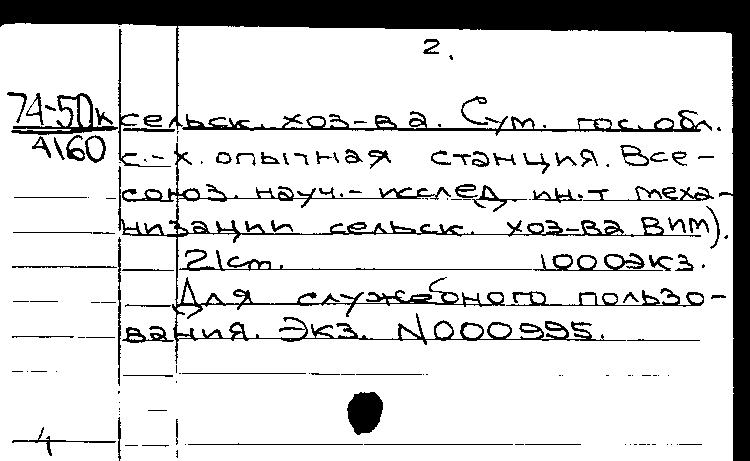 2.
74-50к сельск. хоз-ва. Сум. гос. обл.
4160 с.-х. опытная станция. Все-
союз. науч.-исслед. ин.т меха-
низации сельск. хоз-ва ВИМ).
21 ст. 1000экз.
Для служебного пользо-
вания. Экз. N000995.